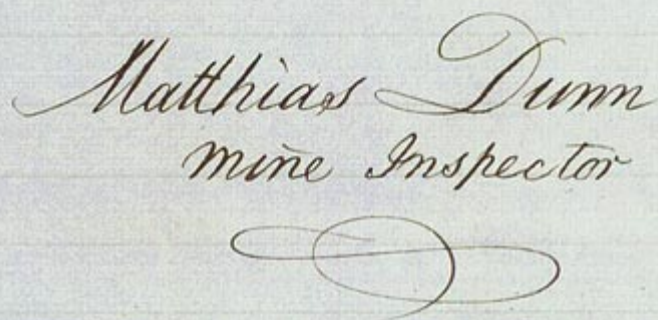 Matthias Dunn
Mine Inspector